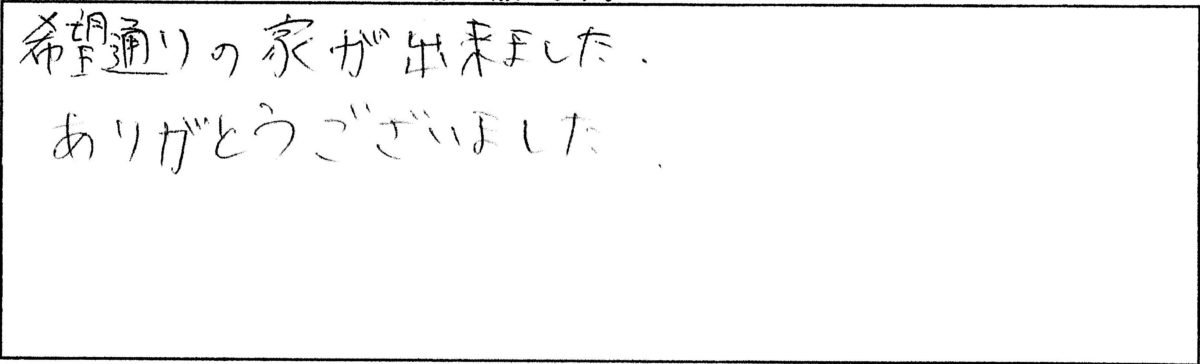 希望通りの家が出来ました.
ありがとうございました.